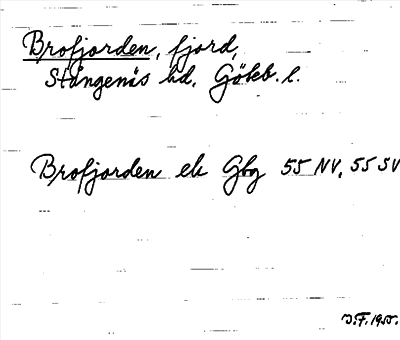 Brofjorden, fjord,
Stångenäs hd. Göteb. l.
Brofjorden ek Gbg 55 NV, 55 SV
J.F. 1955.